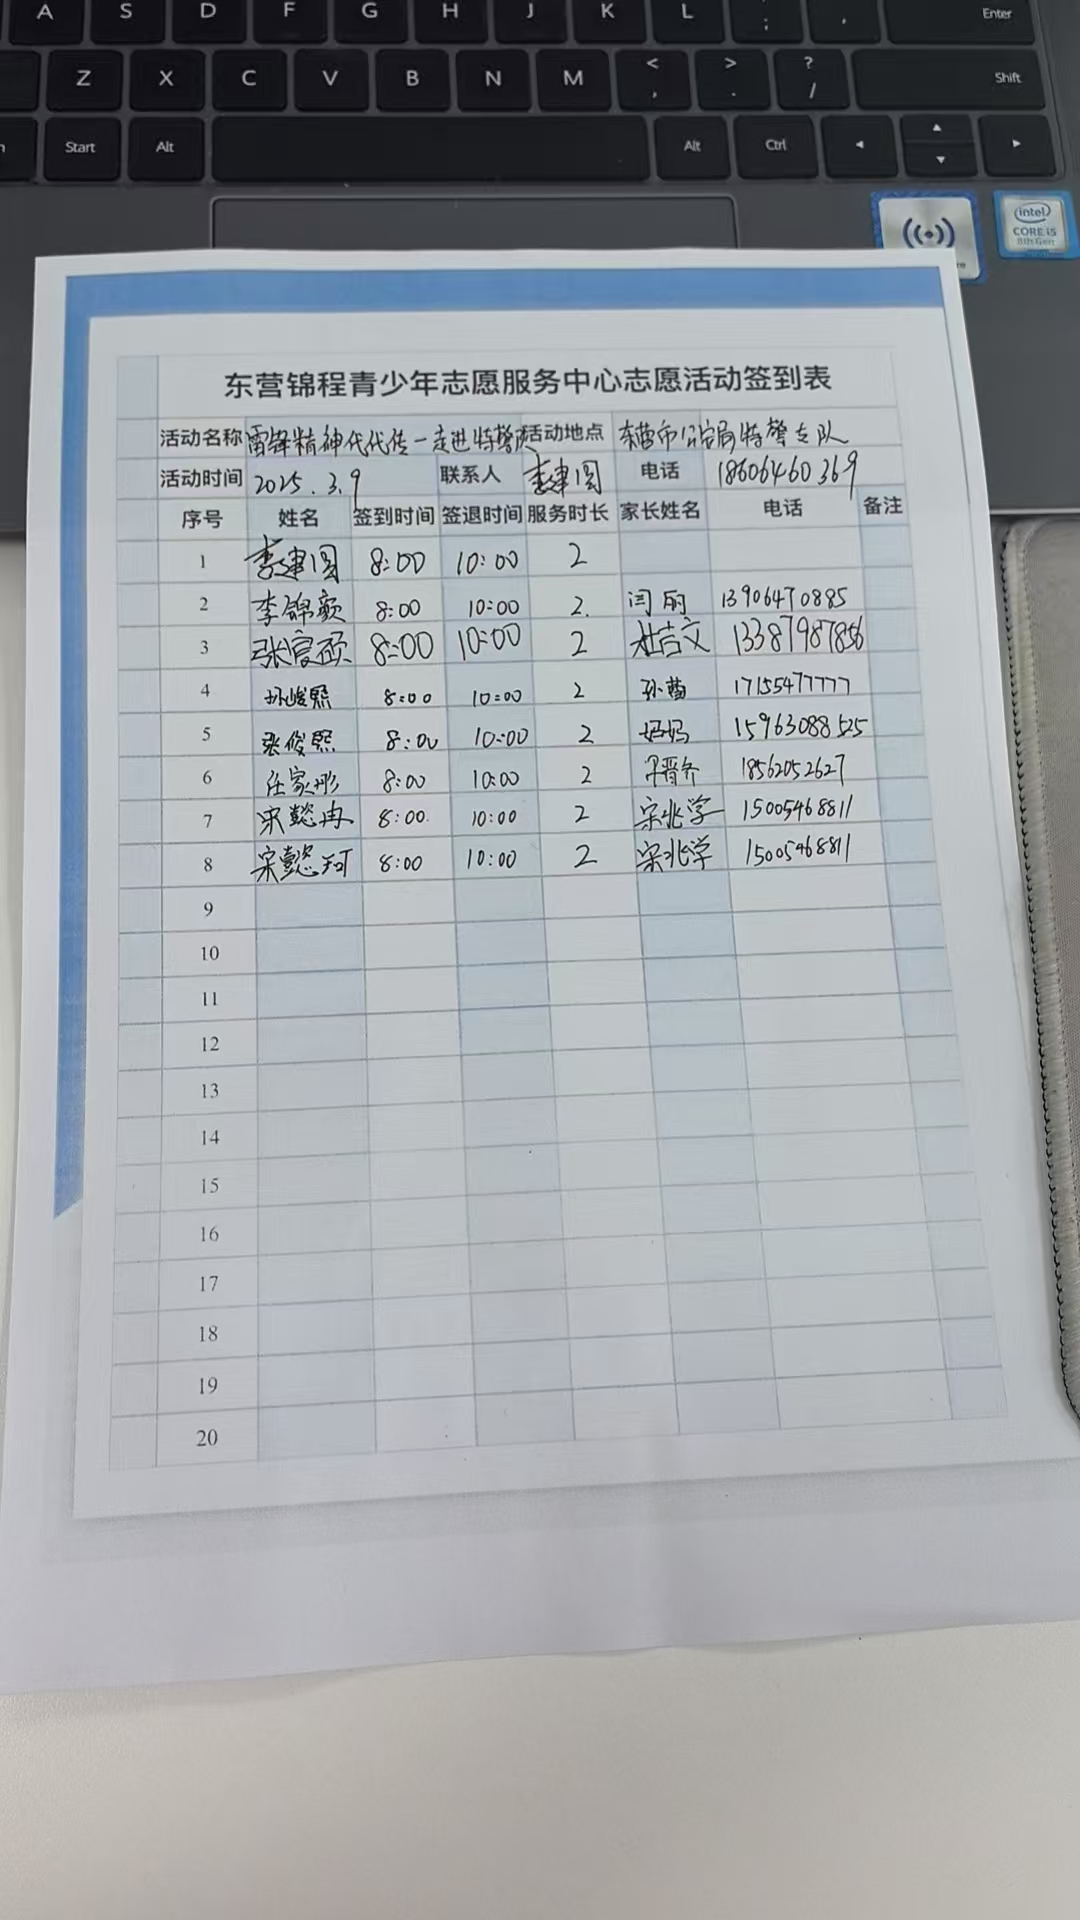 A S D F G H J K L ; , Enter
Z X C V B N M < , > . ? / Shift
Start Alt Alt Ctrl
intel
CORE i5
8th Gen
东营锦程青少年志愿服务中心志愿活动签到表
活动名称 雷锋精神代代传一走进特警队 活动地点 东营市公安局特警支队
活动时间 2025.3.9 联系人 李建国 电话 18606460369
序号 姓名 签到时间 签退时间 服务时长 家长姓名 电话 备注
1 李建国 8:00 10:00 2
2 李锦颜 8:00 10:00 2. 闫丽 13906470885
3 张宸硕 8:00 10:00 2 杜吉文 13387987856
4 孙峻熙 8:00 10:00 2 孙 17155477777
5 张俊熙 8:00 10:00 2 妈妈 15963088525
6 任家彤 8:00 10:00 2 18562052627
7 宋懿冉 8:00. 10:00 2 宋兆学 15005468811
8 宋懿珂 8:00 10:00 2 宋兆学 15005468811
9
10
11
12
13
14
15
16
17
18
19
20